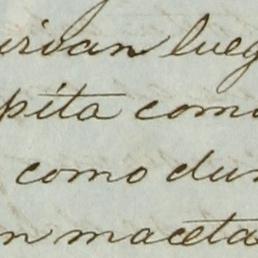 irvan lueg
pita como
como dur
n maceta